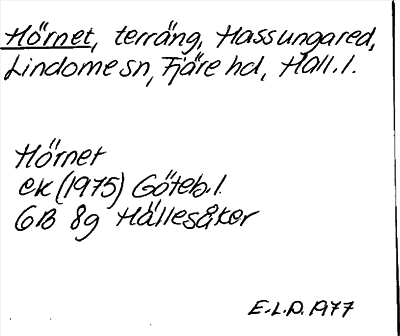 Hörnet, terräng, Hassungared,
Lindome sn, Fjäre hd, Hall. l.
Hörnet
ek (1975) Göteb. l.
6B 8g Hällesåker
E.L.D. 1977